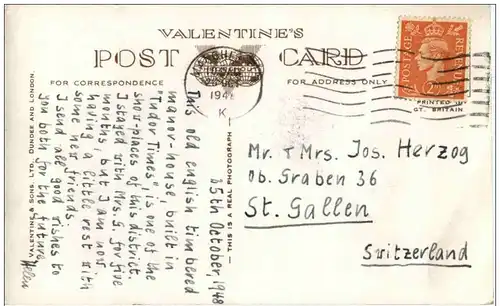 VALENTINE'S
POST CARD
FOR CORRESPONDENCE
FOR ADDRESS ONLY
PRINTED IN
GT. BRITAIN
POSTAGE
REVENUE
194
K
25th October, 1948
This old english timbered
manor-house, built in
"Tudor Times", is one of the
show-places of this district.
I stayed with Mrs. G. for five
months but I am now
having a little rest with
some new friends.
I send all good wishes to
you both for the future
Helen
VALENTINE & SONS, LTD., DUNDEE AND LONDON.
THIS IS A REAL PHOTOGRAPH
Mr. + Mrs. Jos. Herzog
Ob. Graben 36
St. Gallen
Switzerland